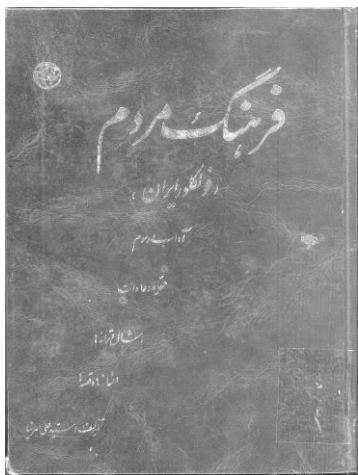 فرهنگ مردم
(فولکلور ایران)
آداب و رسوم
عقاید و عادات
امثال و ترانه‌ها
افسانه‌ها و قصه‌ها
تألیف: سید علی میرنیا